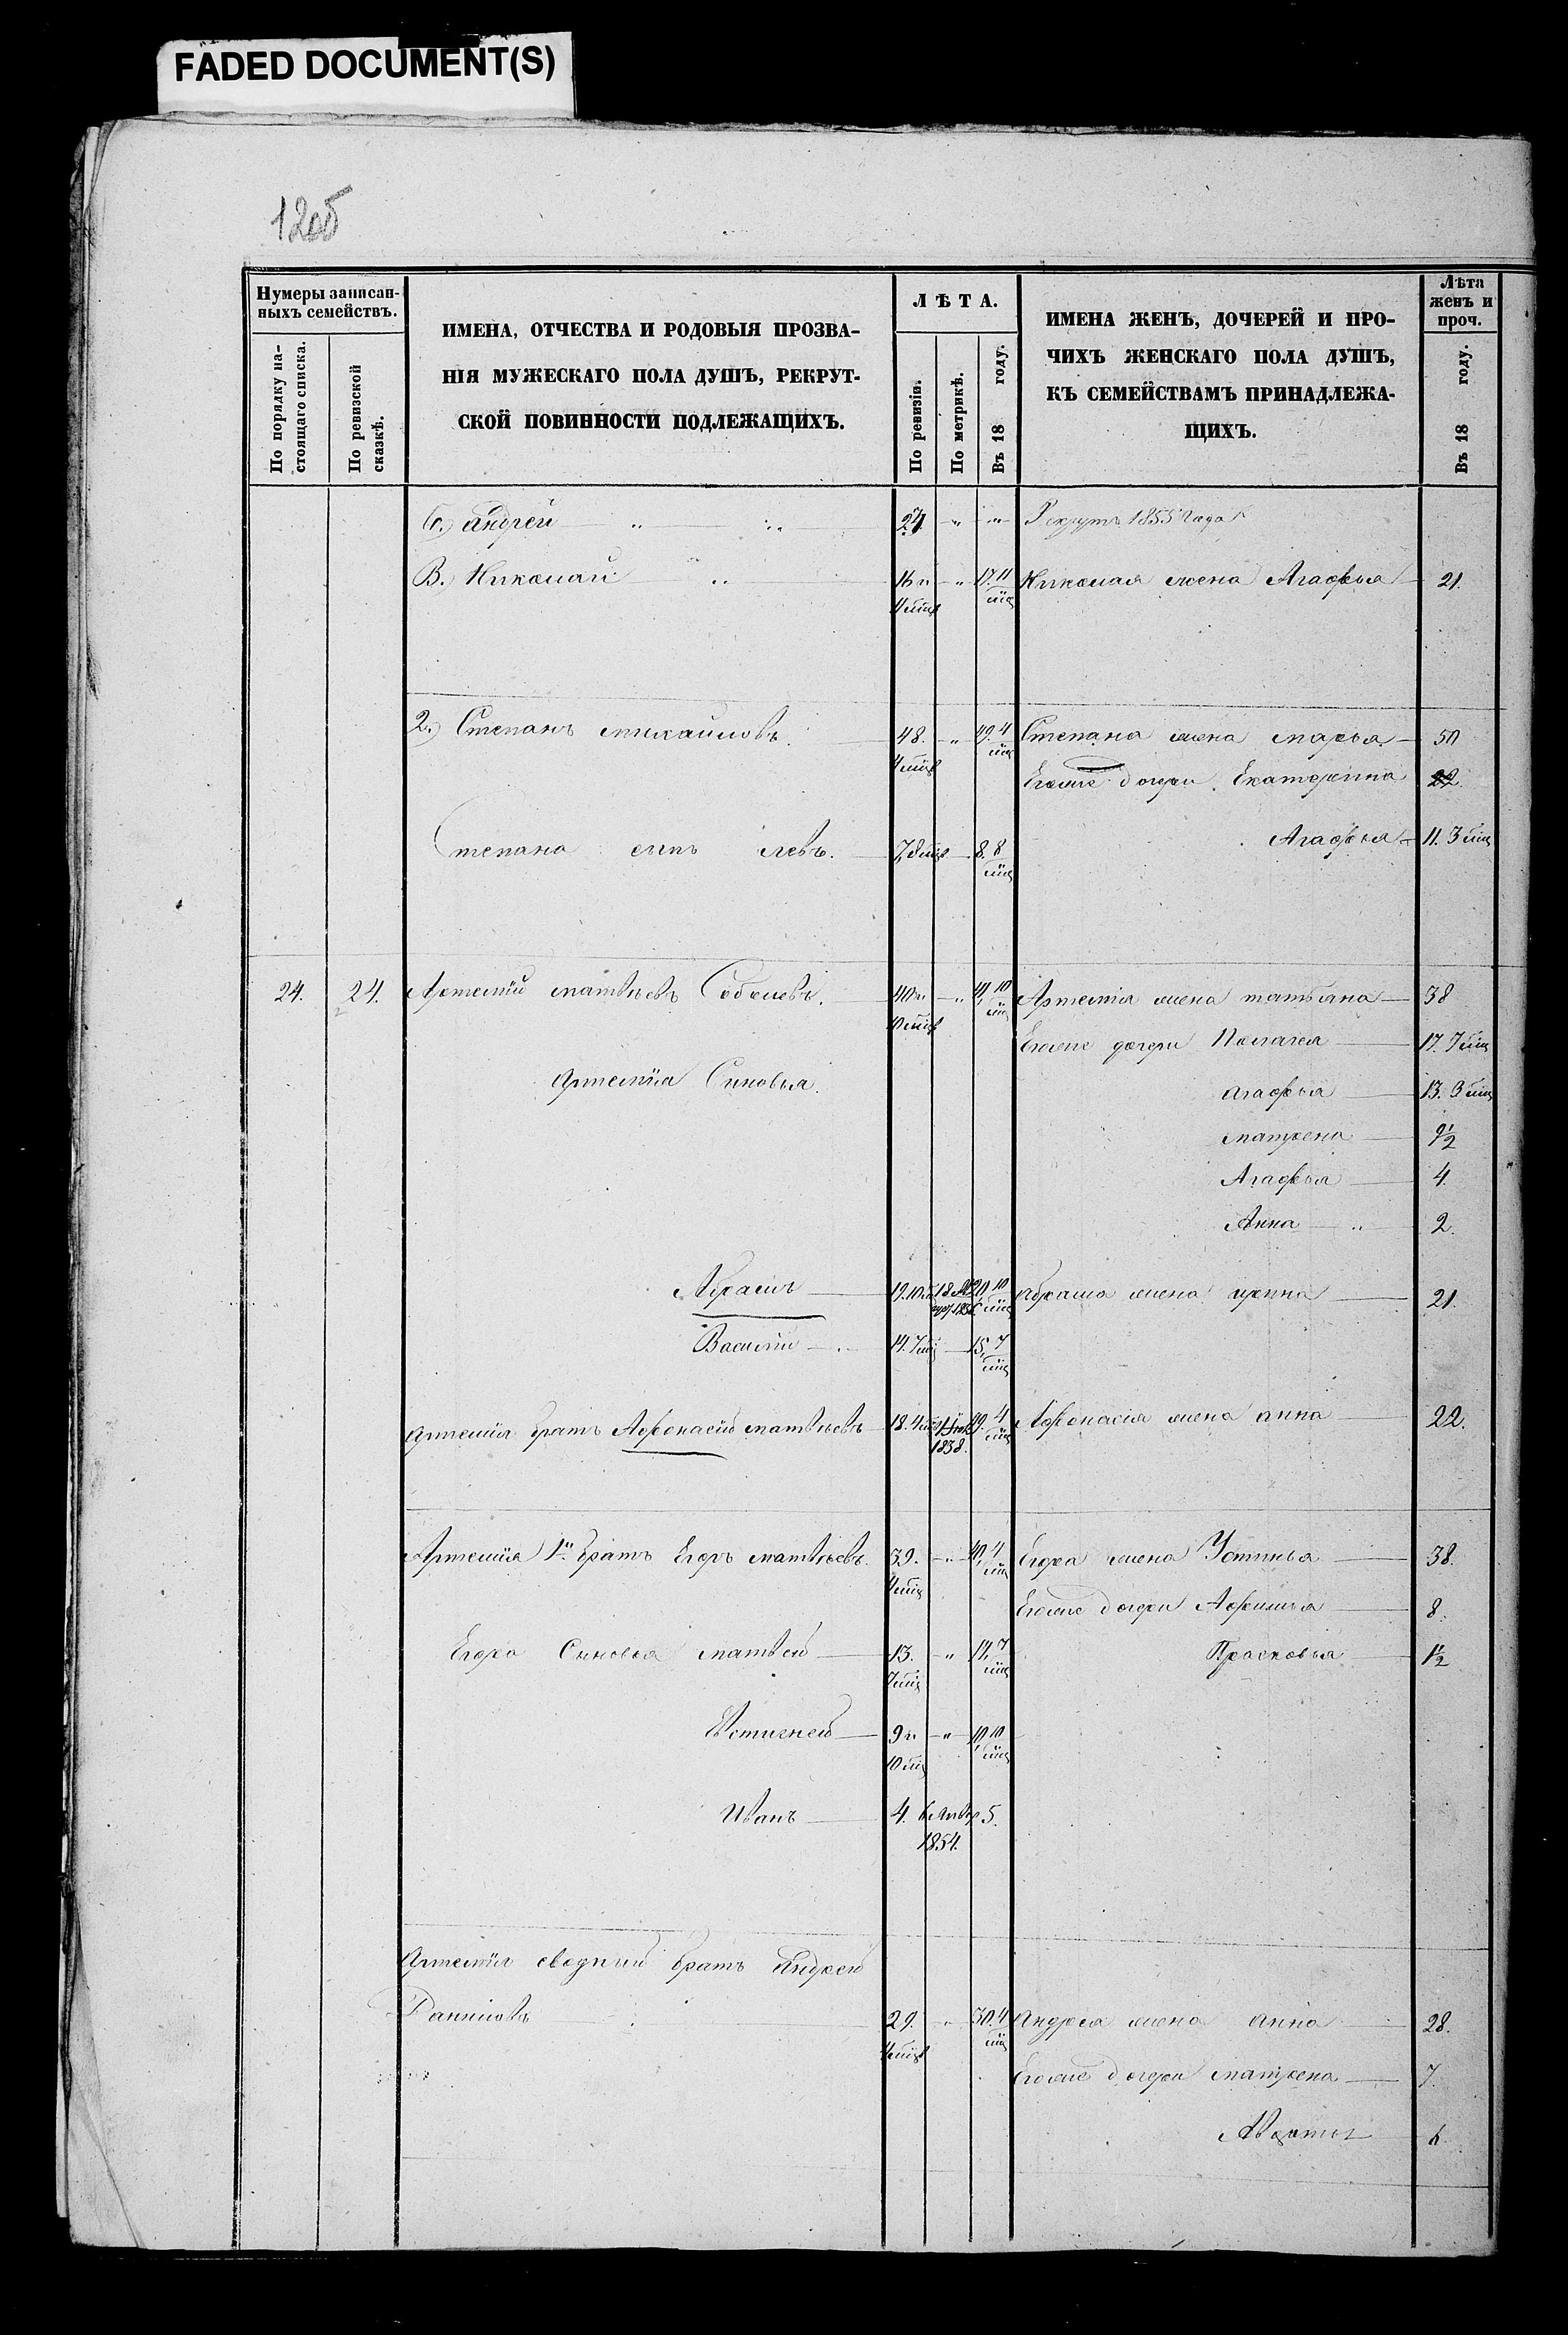 FADED DOCUMENT(S)
120б
Нумеры записан-
ныхъ семействъ.
По порядку на-
стоящаго списка.
По ревизской
сказкѣ.
ИМЕНА, ОТЧЕСТВА И РОДОВЫЯ ПРОЗВА-
НІЯ МУЖЕСКАГО ПОЛА ДУШЪ, РЕКРУТ-
СКОЙ ПОВИННОСТИ ПОДЛЕЖАЩИХЪ.
ЛѢТА.
По ревизіи.
По метрикѣ.
Въ 18 году.
ИМЕНА ЖЕНЪ, ДОЧЕРЕЙ И ПРО-
ЧИХЪ ЖЕНСКАГО ПОЛА ДУШЪ,
КЪ СЕМЕЙСТВАМЪ ПРИНАДЛЕЖА-
ЩИХЪ.
Лѣта
женъ и
проч.
Въ 18 году.
б.) Андрей " " " " Рекрутъ 1855 года
В.) Николай " 16 и " 17. 11 Николая жена Агафья 21.
мц
2.) Степанъ Михайловъ. 48. " 49. 4 Степана жена Марья 50
4 мцв мц
Егоже дочери Екатерина 22
Степана сынъ Левъ. 7 8 мцв 8. 8 Агафья 11. 3 мц
мц
24. 24. Артемій Матвѣевъ Соболевъ. 40 и " 41, 10 Артемія жена Татьяна 38
10 мцв мц
Егоже дочери Пелагея 17. 7 мц
Артемія Сыновья. Агафья 13. 3 мц
Матрена 9 1/2
Агафья 4.
Анна " 2.
Абрамъ 19. 10 м 18 10 Абрама жена Ирина 21.
мц
Василій " 14. 7 мц 15, 7
мц
Артемія братъ Афонасій Матвѣевъ 18. 4 19. 4 Афонасія жена Анна 22.
1838. мц
Артемія 1й братъ Егоръ Матвѣевъ. 39. " 40, 4 Егора жена Устинья 38.
4 мц мц
Егоже дочери Афимья 8.
Егора Сыновья Матвѣй 13. " 14, 7 Прасковья 1 1/2
7 мц мц
Евстигней 9 и " 10, 10
10 мц мц
Иванъ 4. 6 Октбр 5.
1854.
Артемія сводный братъ Андрей
Даниловъ 29. " 30. 4 Андрея жена Анна 28.
4 мцв мц
Егоже дочери Матрена 7.
Авдотья